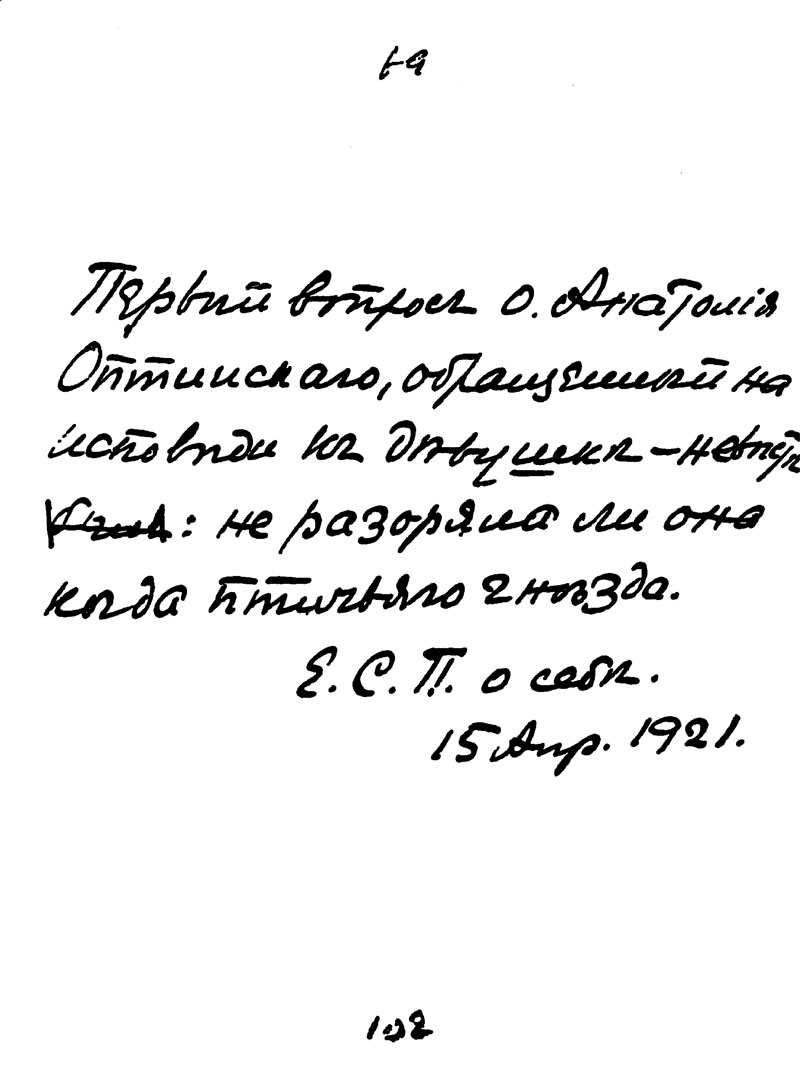 69
Первый вопросъ о. Анатолія
Оптинскаго, обращенный на
исповѣди къ дѣвушкѣ –
: не разоряла ли она
когда птичьяго гнѣзда.
Е. С. П. о себѣ.
15 Апр. 1921.
102